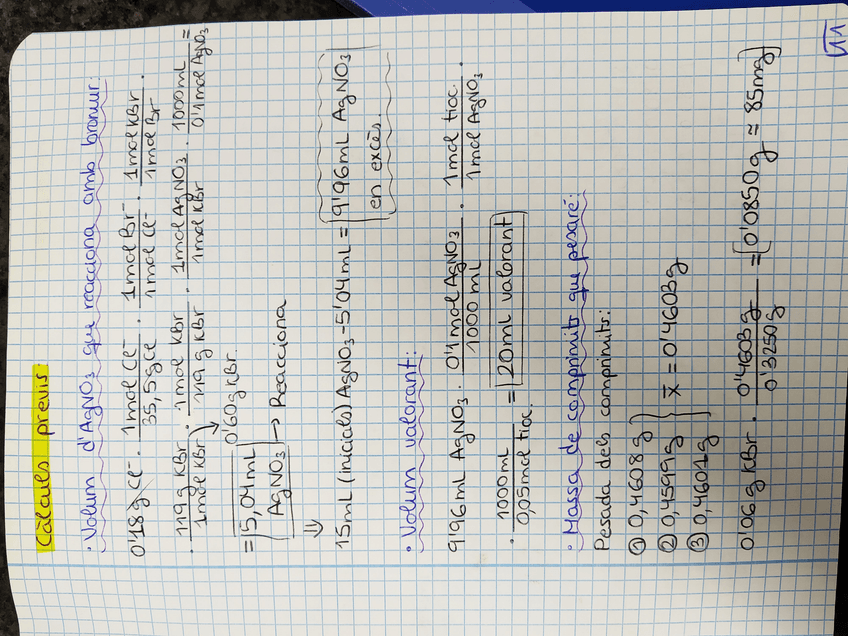 Càlculs previs:
· Volum d'AgNO₃ que reacciona amb bromur:
0'18 g Cl⁻ · 1 mol Cl⁻ / 35,5 g Cl⁻ · 1 mol Br⁻ / 1 mol Cl⁻ · 1 mol KBr / 1 mol Br⁻ ·
· 119 g KBr / 1 mol KBr · 1 mol KBr / 119 g KBr · 1 mol AgNO₃ / 1 mol KBr · 1000 mL / 0'1 mol AgNO₃ =
↳ 0'60 g KBr
= 5,04 mL AgNO₃ → Reacciona
⇓
15 mL (inicials) AgNO₃ - 5'04 mL = 9'96 mL AgNO₃ en excés.
· Volum valorant:
9'96 mL AgNO₃ · 0'1 mol AgNO₃ / 1000 mL · 1 mol tioc. / 1 mol AgNO₃ ·
· 1000 mL / 0,05 mol tioc. = 20 mL valorant
· Massa de comprimits que pesaré:
Pesada dels comprimits:
① 0,4608 g
② 0,4599 g } x̄ = 0'4603 g
③ 0,4601 g
0'06 g KBr · 0'4603 g / 0'3250 g = 0'0850 g ≈ 85 mg
11